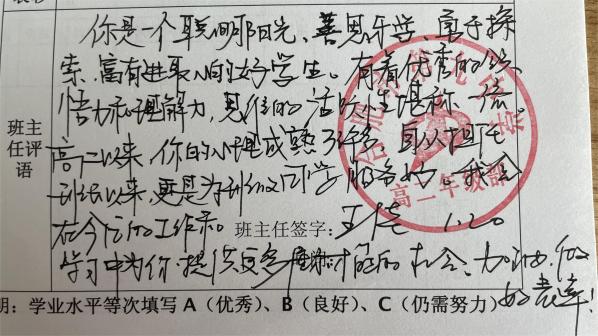 你是一个聪明阳光、善思乐学、勇于探
索、富有进取心的好学生。有着优秀的领
悟力和理解力，思维的活跃性堪称一流。
高二以来，你的心理成熟了许多，自从担任
班长以来，更是为班级同学服务好。我会
在今后的工作和
学习中为你提供更多展示才能的机会、加油，你
的老连！
班主任评语
班主任签字：王
1.20
高二年级部
明：学业水平等次填写A（优秀）、B（良好）、C（仍需努力）